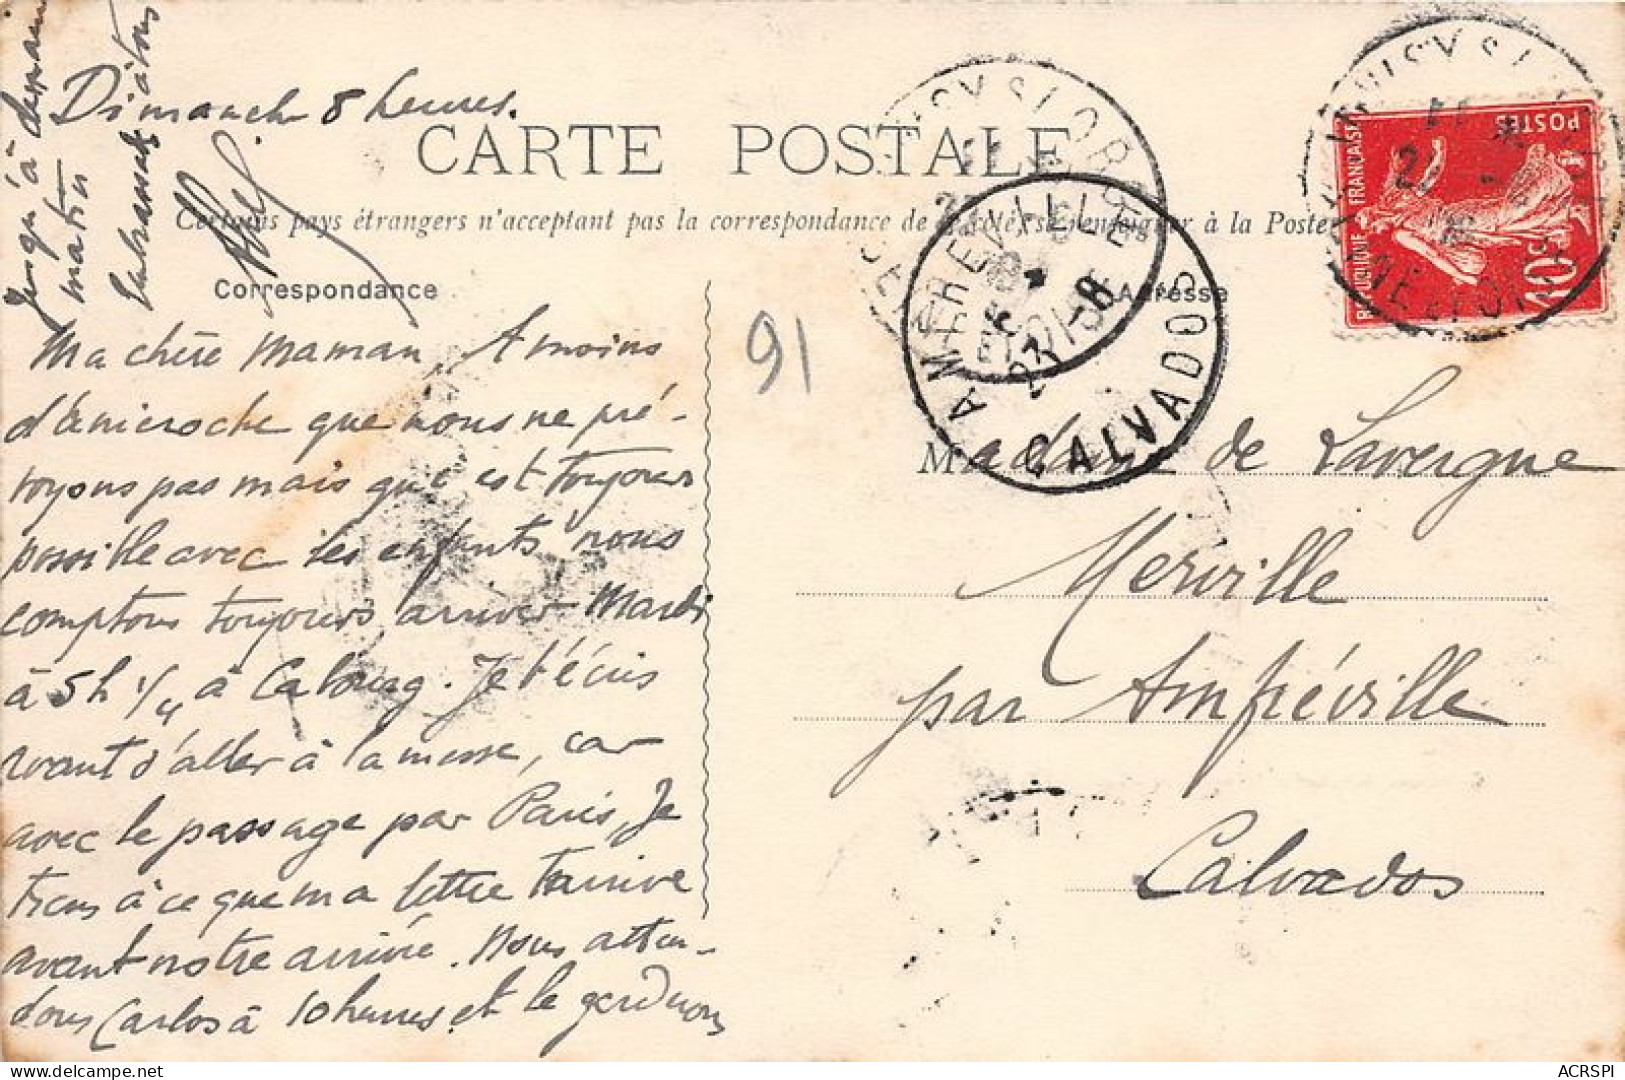 Dimanche 8 heures.
CARTE POSTALE
Certains pays étrangers n'acceptent pas la correspondance de renseigner à la Poste
Correspondance
Adresse
Ma chère Maman, A moins
d'anicroche que nous ne pré-
voyons pas mais qui est toujours
possible avec les enfants nous
comptons toujours arriver Mardi
à 5h 1/4 à Cabourg. Je t'écris
avant d'aller à la messe, car
avec le passage par Paris, je
tiens à ce que ma lettre t'arrive
avant notre arrivée. Nous atten-
dons Carlos à 10 heures et le garderons
jusqu'à demain
matin
Embrassez
Abel
91
Madame de Lavergne
Merville
par Amfréville
Calvados
REPUBLIQUE FRANÇAISE
POSTES
10c
AMFREVILLE
23 / -08
CALVADOS
ACRSPI